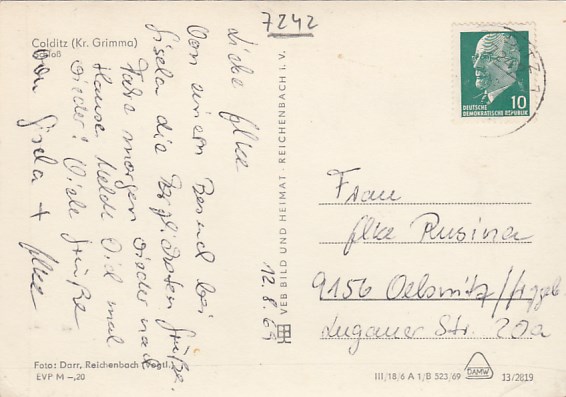 7242
Colditz (Kr. Grimma)
Schloß
Liebe Ilke
Von einem Besuch bei
Gisela die herzlichsten Grüße.
Fahre morgen wieder nach
Hause. Melde Dich mal
wieder! Viele Grüße
von Gisela + Ilke
12.8.69
VEB BILD UND HEIMAT · REICHENBACH i. V.
10
DEUTSCHE
DEMOKRATISCHE REPUBLIK
Frau
Ilke Rusina
9156 Oelsnitz/Erzgeb.
Lugauer Str. 20a
Foto: Darr, Reichenbach (Vogtl.)
EVP M –,20
III/18/6 A 1/B 523/69
DAMW
13/2819